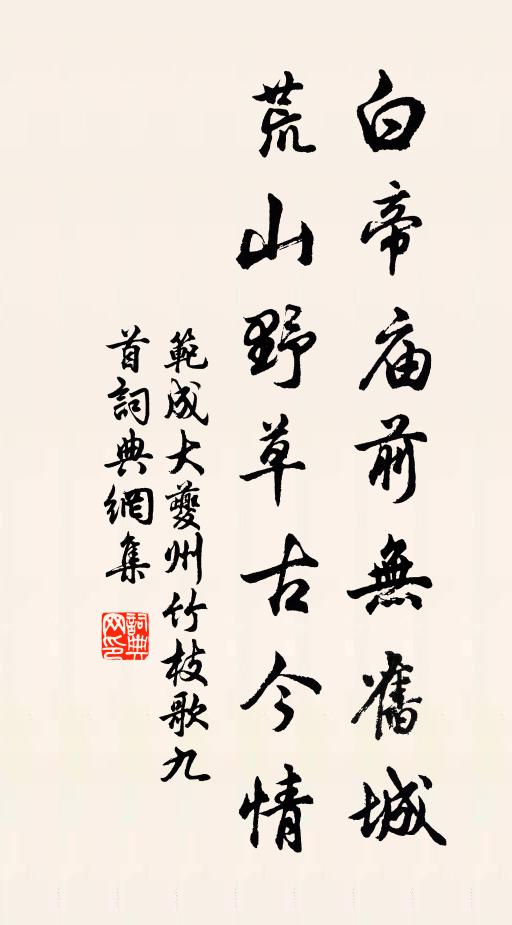 白帝庙前無舊城
荒山野草古今情
範成大夔州竹枝歌九
首詞典網集
詞典网印